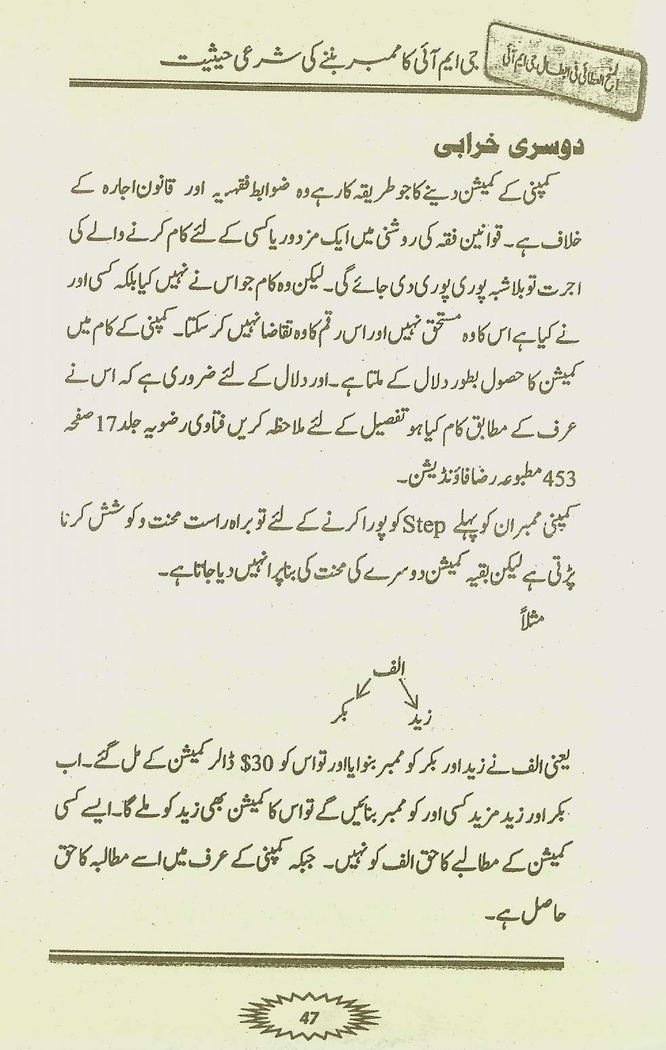 جی ایم آئی کا ممبر بننے کی شرعی حیثیت
دوسری خرابی
کمپنی کے کمیشن دینے کا جو طریقہ کار ہے وہ ضوابط فقہیہ اور قانون اجارہ کے
خلاف ہے۔ قوانین فقہ کی روشنی میں ایک مزدور یا کسی کے لئے کام کرنے والے کی
اجرت تو بلاشبہ پوری پوری دی جائے گی۔ لیکن وہ کام جو اس نے نہیں کیا بلکہ کسی اور
نے کیا ہے اس کا وہ مستحق نہیں اور اس رقم کا وہ تقاضا نہیں کر سکتا۔ کمپنی کے کام میں
کمیشن کا حصول بطور دلال کے ملتا ہے۔ اور دلال کے لئے ضروری ہے کہ اس نے
عرف کے مطابق کام کیا ہو تفصیل کے لئے ملاحظہ کریں فتاوی رضویہ جلد 17 صفحہ
453 مطبوعہ رضا فاؤنڈیشن۔
کمپنی ممبران کو پہلے Step کو پورا کرنے کے لئے تو براہ راست محنت و کوشش کرنا
پڑتی ہے لیکن بقیہ کمیشن دوسرے کی محنت کی بنا پر انہیں دیا جاتا ہے۔
مثلاً
الف
زید بکر
یعنی الف نے زید اور بکر کو ممبر بنوایا اور تو اس کو 30$ ڈالر کمیشن کے مل گئے۔ اب
بکر اور زید مزید کسی اور کو ممبر بنائیں گے تو اس کا کمیشن بھی زید کو ملے گا۔ ایسے کسی
کمیشن کے مطالبے کا حق الف کو نہیں۔ جبکہ کمپنی کے عرف میں اسے مطالبہ کا حق
حاصل ہے۔
47